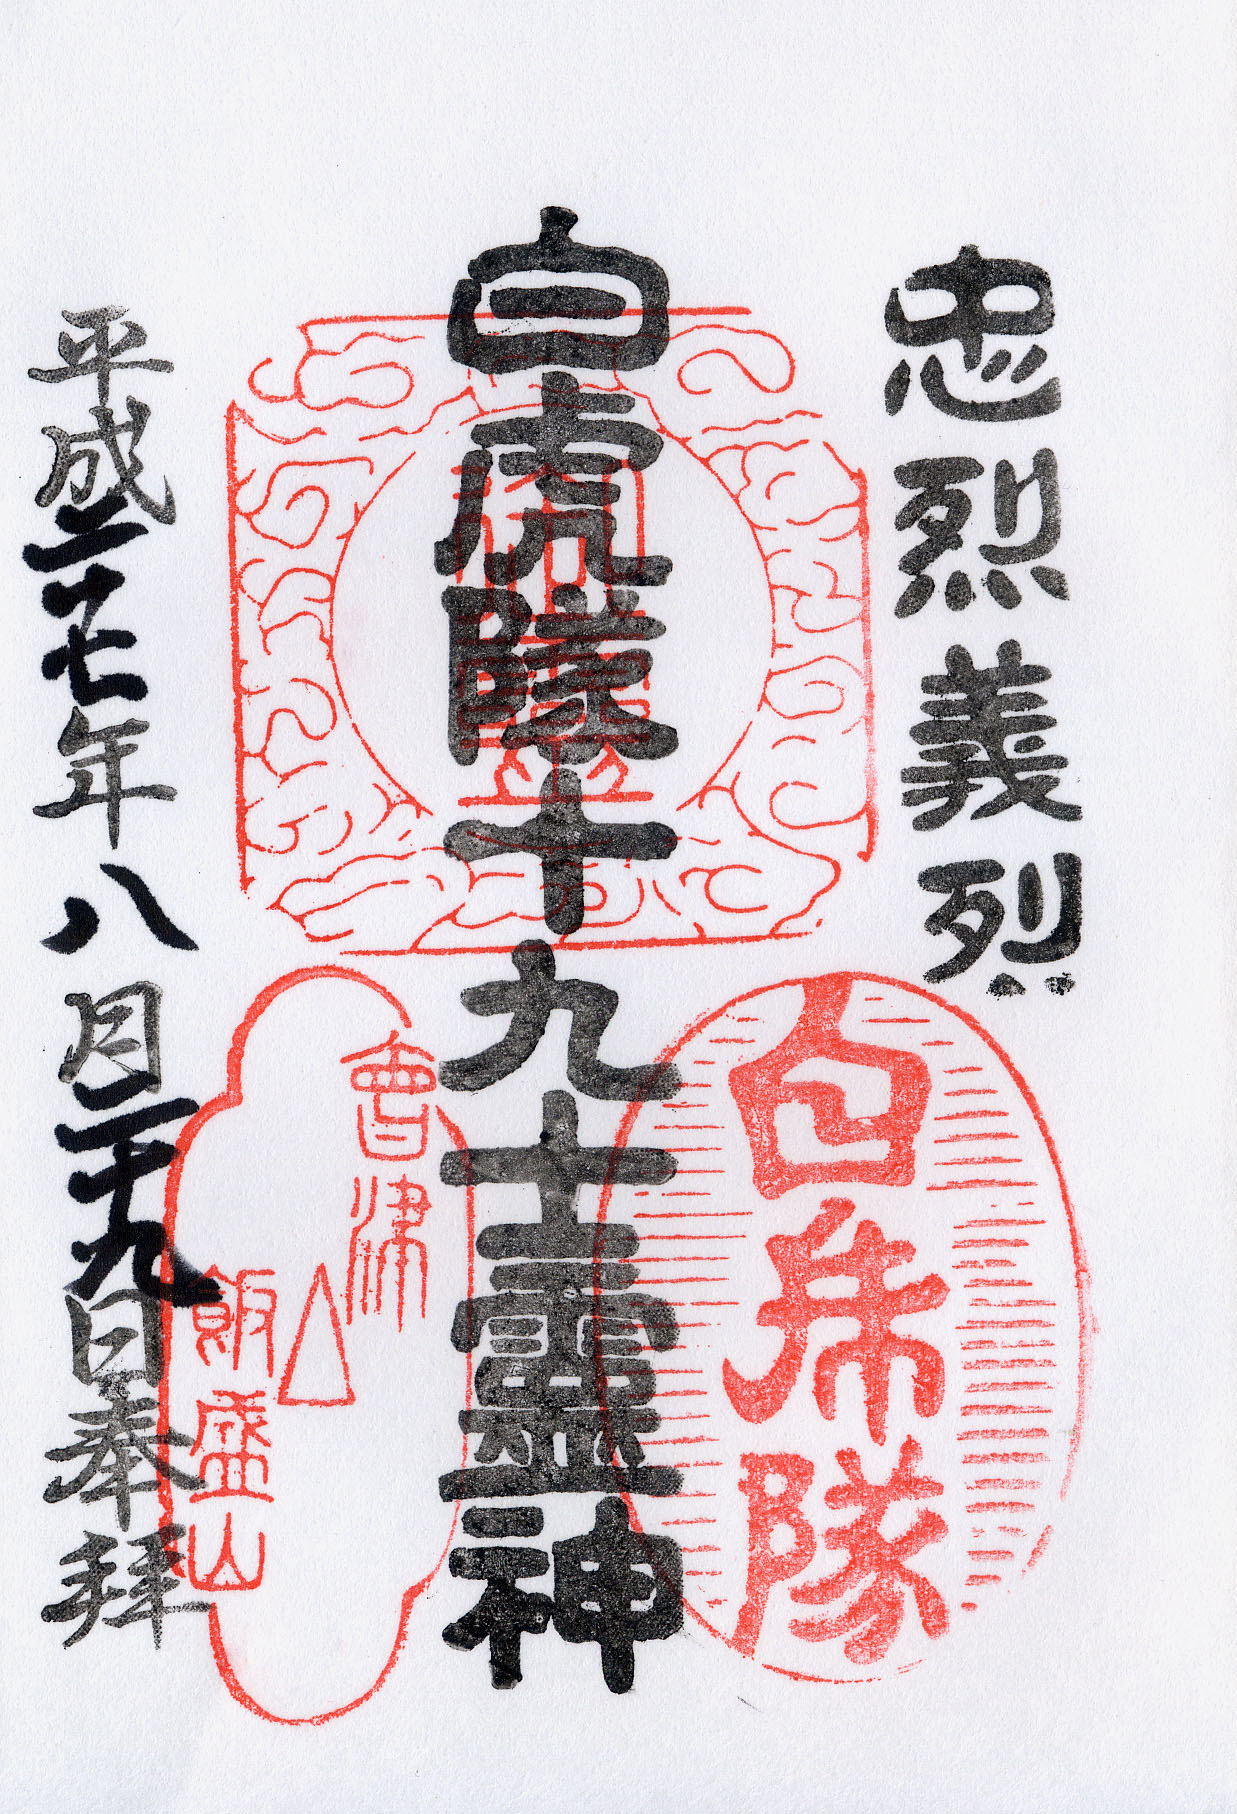 忠烈義烈
白虎隊十九士霊神
平成二十七年八月二十九日奉拝
白虎隊
會津
飯盛山